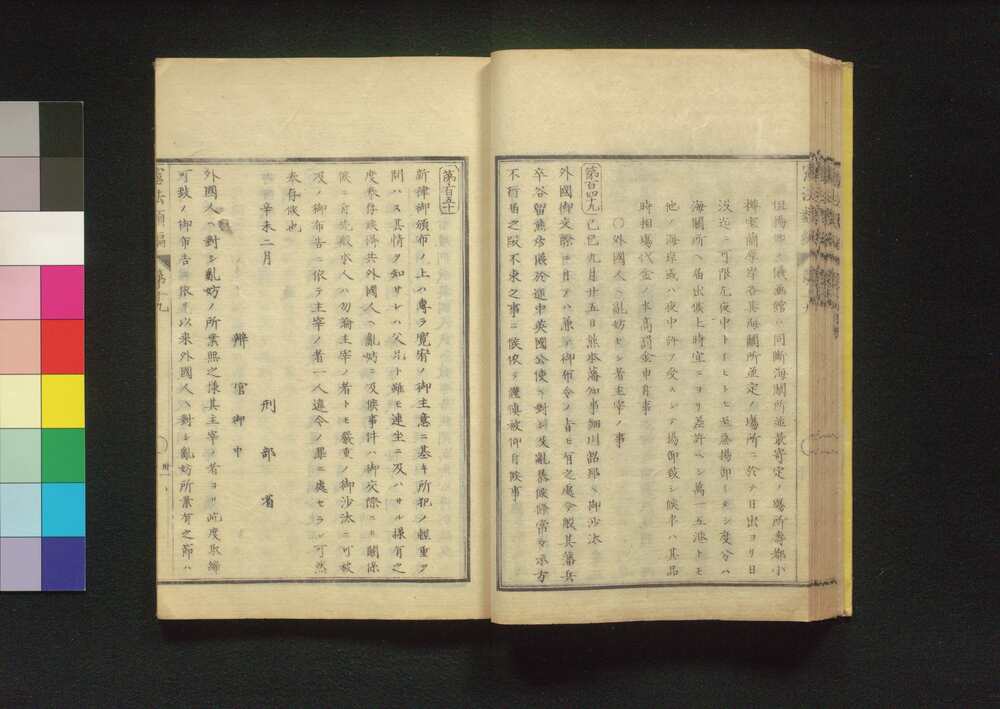 但陽四ヶ俵画館ハ同断海關所並最寄定ノ場所壽都小
樽室蘭厚岸各其海關所並定ノ場所ニ於テ日出ヨリ日
没迄ニ可限尤夜中
海關所ヘ届出候上時宜ニヨリ差許ヘシ萬一五港トモ
他ノ海岸或ハ夜中許ヲ受スシテ揚卸致シ候ハハ其品
時相場代金ノ本高罰金申付事
○外國人ヘ亂妨セシ者主宰ノ事
第百四十九 己巳九月廿五日熊本藩知事細川韶邦ヘ御沙汰
外國御交際ニ付テハ兼テ御布令ノ旨モ有之處今般其藩兵
卒谷留熊彦儀於途中英國公使ニ對シ失亂暴候條常々示方
不行届之段不束之事ニ候依テ謹慎被仰付候事
第百五十
新律御頒布ノ上ハ專ラ寛宥ノ御主意ニ基キ所犯ノ輕重ヲ
問ハス其情ヲ知サレハ父兄ト雖モ連坐ニ及ハサル様有之
度奉存候得共外國人ヘ亂妨ニ及候事件ハ御交際ニモ關係
候ニ付先般本人ハ勿論主宰ノ者トモ嚴重ノ御沙汰ニ可被
及ノ御布告ニ依テ主宰ノ者一人違令ノ罪ニ處セラレ可然
奉存候也
辛未二月
刑部省
辨官御中
外國人ヘ對シ亂妨ノ所業無之様其主宰ノ者ヨリ屹度取締
可致ノ御布告ニ依リ以来外國人ヘ對シ亂妨所業有之節ハ
憲法類編 第十九